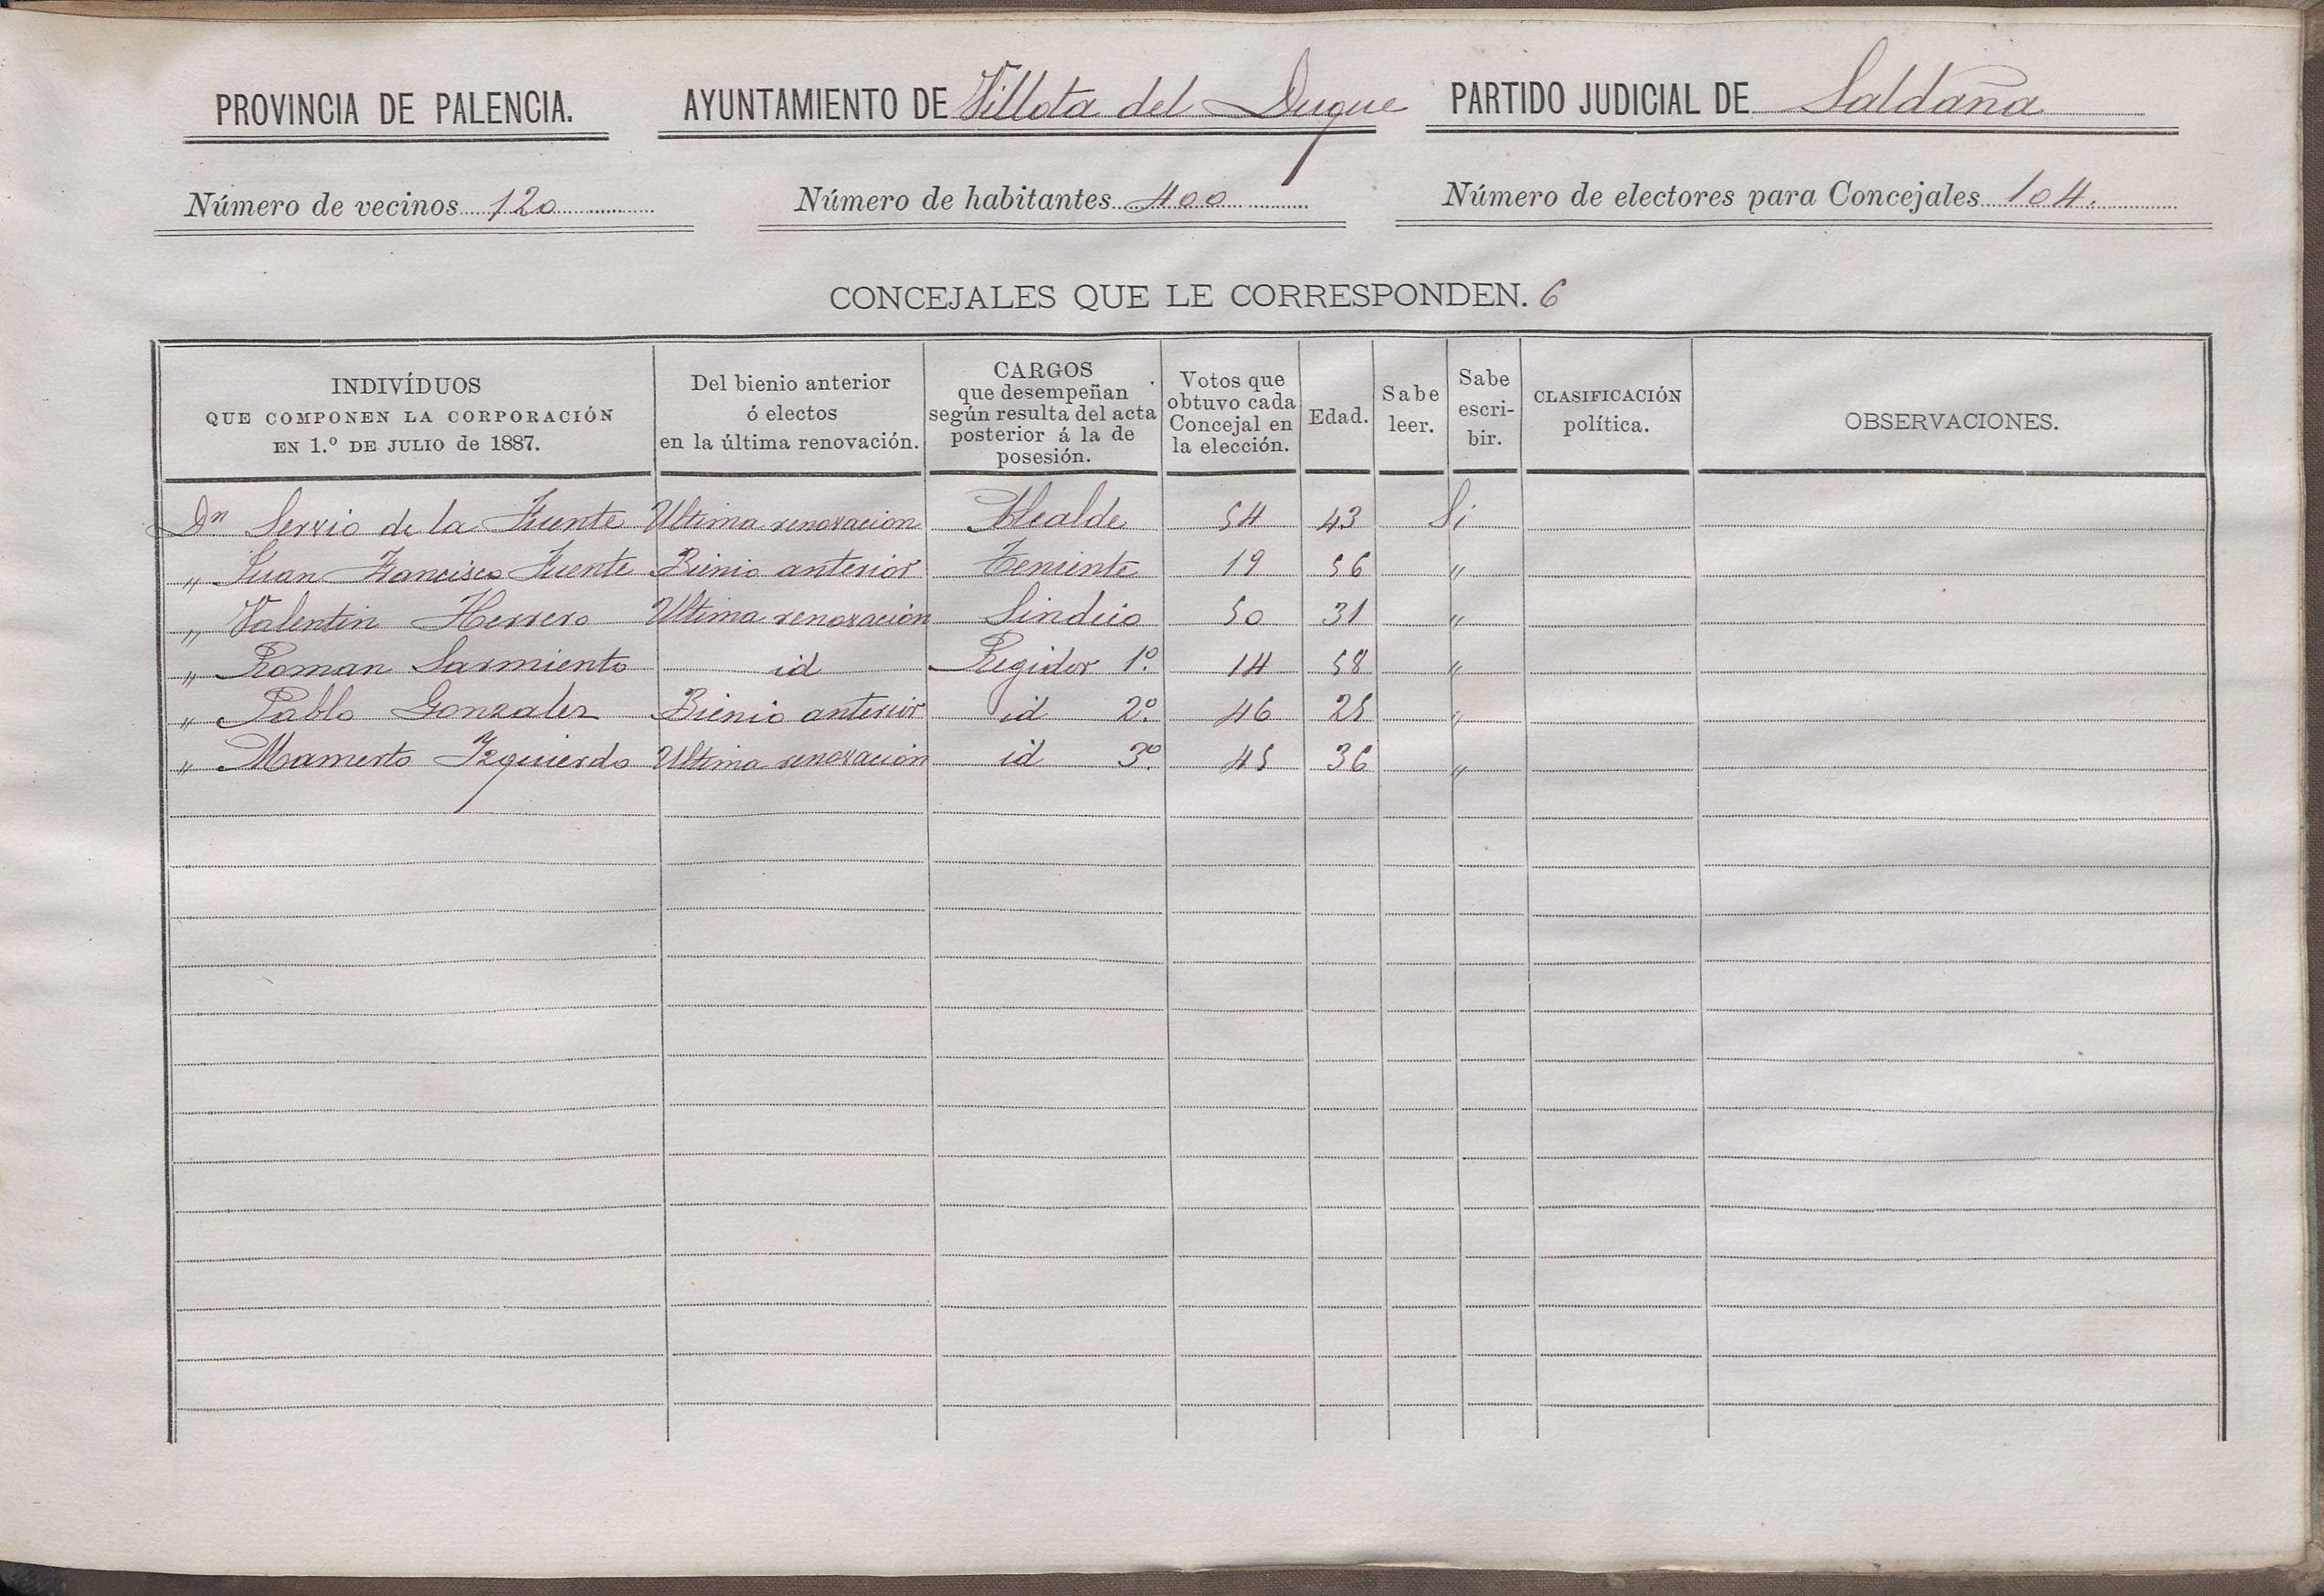 PROVINCIA DE PALENCIA. AYUNTAMIENTO DE Villota del Duque PARTIDO JUDICIAL DE Saldaña
Número de vecinos 120 Número de habitantes 400 Número de electores para Concejales 104.
CONCEJALES QUE LE CORRESPONDEN. 6
INDIVÍDUOS
QUE COMPONEN LA CORPORACIÓN
EN 1.º DE JULIO de 1887.
Del bienio anterior
ó electos
en la última renovación.
CARGOS
que desempeñan
según resulta del acta
posterior á la de
posesión.
Votos que
obtuvo cada
Concejal en
la elección.
Edad.
Sabe
leer.
Sabe
escri-
bir.
CLASIFICACIÓN
política.
OBSERVACIONES.
Dn Servio de la Fuente Ultima renovacion Alcalde 54 43 Si
" Juan Francisco Fuente Bienio anterior Teniente 19 56 "
" Valentin Herrero Ultima renovación Sindico 50 31 "
" Roman Sarmiento id Regidor 1º. 14 58 "
" Pablo Gonzalez Bienio anterior id 2º. 46 25 "
" Mamerto Izquierdo Ultima renovación id 3º. 45 36 "